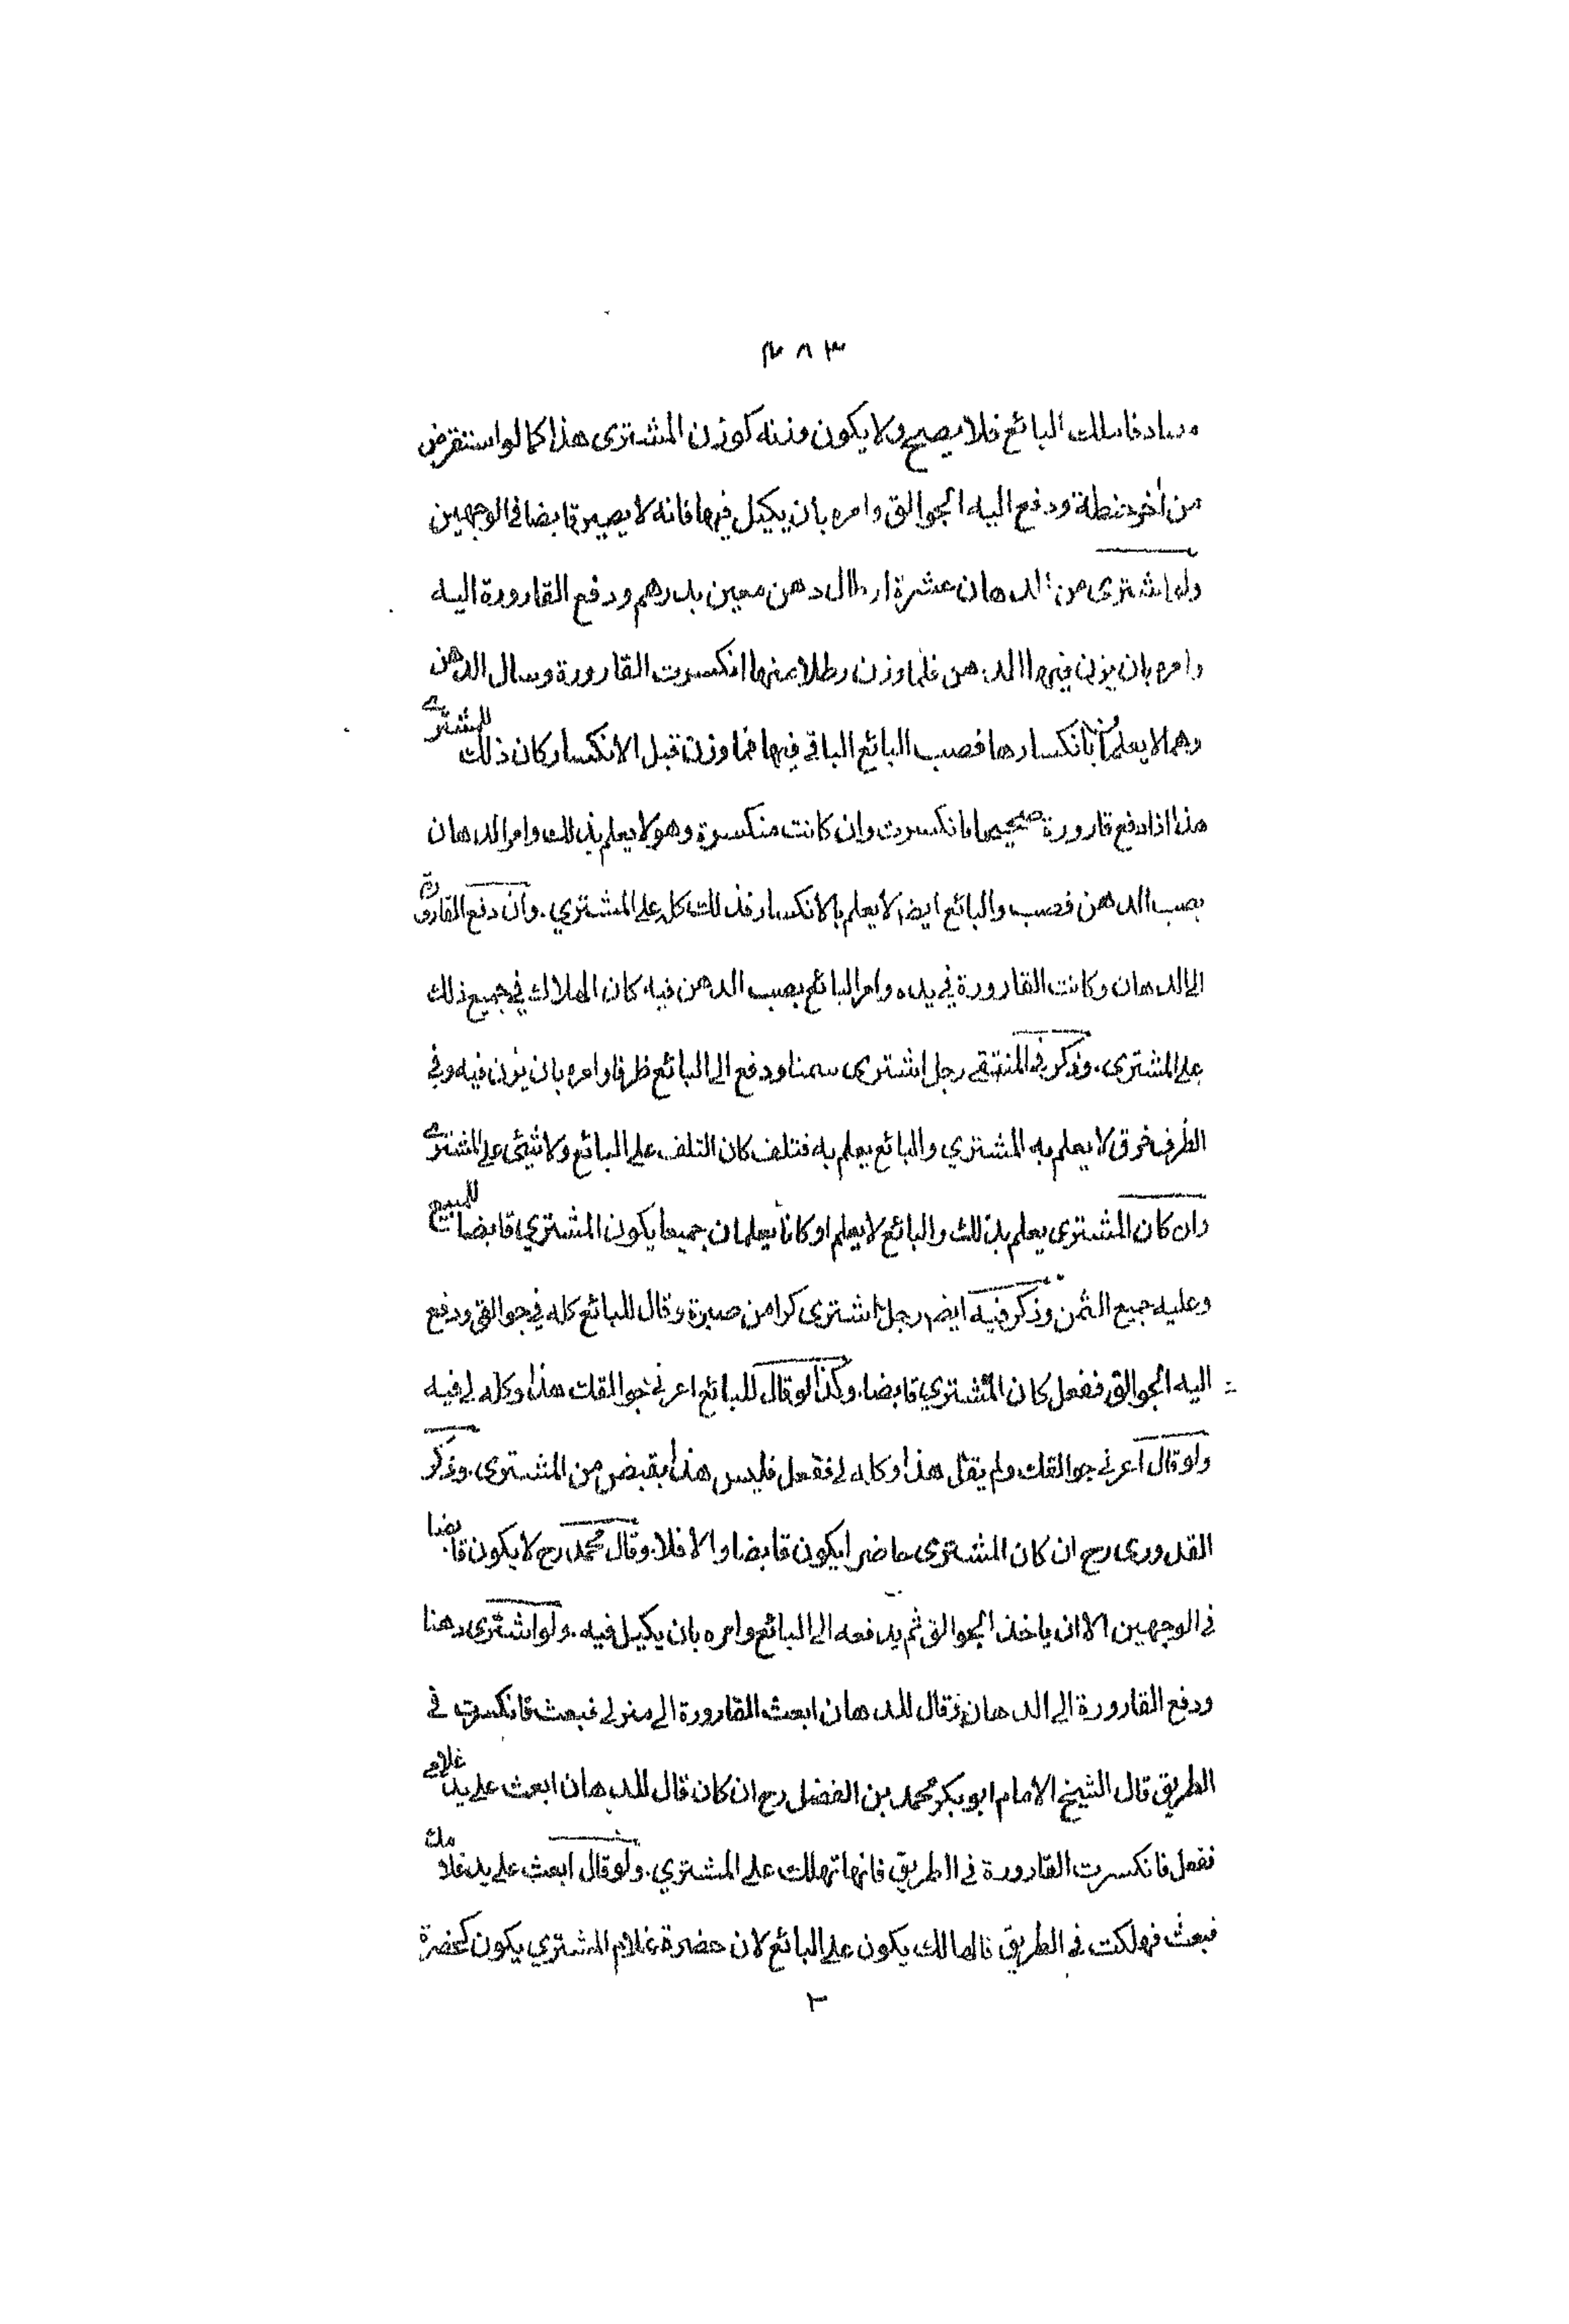 ٤٨٣
صادف ملك البائع فلا يصح ولا يكون وزنه كوزن المشترى هذا كما لو استقرض
من آخر حنطة ودفع اليه الجوالق وامره بان يكيل فيها فانه لا يصير قابضا فى الوجهين
ولو اشترى من الدهان عشرة ارطال دهن معين بدرهم ودفع القارورة اليه
وامره بان يزن فيها الدهن فلما وزن رطلا منها انكسرت القارورة وسال الدهن
وهما لا يعلمان بانكسارها فصب البائع الباقي فيها فما وزن قبل الانكسار كان ذلك للمشترى
هذا اذا دفع قارورة صحيحة فانكسرت وان كانت منكسرة وهو لا يعلم بذلك وامر الدهان
بصب الدهن فصب والبائع ايضا لا يعلم بالانكسار فذلك كله على المشتري . وان دفع القارورة
الى الدهان وكانت القارورة في يده وامر البائع بصب الدهن فيه كان الهلاك في جميع ذلك
على المشترى . وذكر فى المنتقى رجل اشترى سمنا ودفع الى البائع ظرفا وامره بان يزن فيه وفى
الظرف خرق لا يعلم به المشتري والبائع يعلم به فتلف كان التلف على البائع ولا شيئ على المشترى
وان كان المشترى يعلم بذلك والبائع لا يعلم او كانا يعلمان جميعا يكون المشتري قابضا للمبيع
وعليه جميع الثمن وذكر فيه ايضا رجل اشترى كرا من صبرة وقال للبائع كله في جوالقي ودفع
اليه الجوالق ففعل كان المشتري قابضا . وكذا لو قال للبائع اعرني جوالقك هذا وكله لي فيه
ولو قال اعرني جوالقك ولم يقل هذا وكله لي ففعل فليس هذا بقبض من المشترى . وذكر
القدورى رح ان كان المشترى حاضرا يكون قابضا والا فلا . وقال محمد رح لا يكون قابضا
في الوجهين الا ان ياخذ الجوالق ثم يدفعه الى البائع وامره بان يكيل فيه . ولو اشترى دهنا
ودفع القارورة الى الدهان وقال للدهان ابعث القارورة الى منزلي فبعث فانكسرت فى
الطريق قال الشيخ الامام ابو بكر محمد بن الفضل رح ان كان قال للدهان ابعث على يد غلامى
ففعل فانكسرت القارورة في الطريق فانها تهلك على المشتري . ولو قال ابعث على يد غلامك
فبعث فهلكت في الطريق فالهالك يكون على البائع لان حضرة غلام المشتري يكون كحضرة
٢